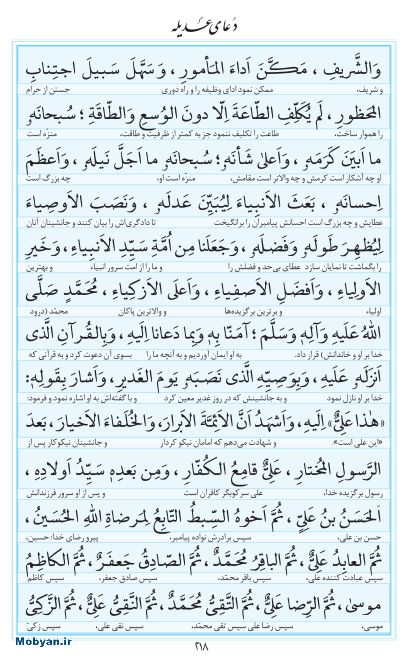 دُعای عَدیله
وَالشَّریفِ ، مَکَّنَ اَداءَ المَأمورِ ، وَسَهَّلَ سَبیلَ اجتِنابِ
و شریف، ممکن نمود ادای وظیفه را و راه دوری جستن از حرام
المَحظورِ، لَم یُکَلِّفِ الطّاعَةَ اِلّا دونَ الوُسعِ وَالطّاقَةِ؛ سُبحانَهُ
را هموار ساخت، طاعت را تکلیف ننمود جز به کمتر از ظرفیت و طاقت، منزّه است
ما اَبیَنَ کَرَمَهُ، وَاَعلیٰ شَأنَهُ؛ سُبحانَهُ ما اَجَلَّ نَیلَهُ، وَاَعظَمَ
او چه آشکار است کرمش و چه والاتر است مقامش، منزه است او، چه بزرگ است
اِحسانَهُ، بَعَثَ الاَنبِیاءَ لِیُبَیِّنَ عَدلَهُ، وَنَصَبَ الاَوصِیاءَ
عطایش و چه بزرگ است احسانش پیامبران را برانگیخت تا دادگری‌اش را بیان کنند و جانشینان آنان
لِیُظهِرَ طَولَهُ وَفَضلَهُ، وَجَعَلَنا مِن اُمَّةِ سَیِّدِ الاَنبِیاءِ، وَخَیرِ
را بگماشت تا نمایان سازد عطای بی‌حد و فضلش را و ما را از امت سرور انبیاء و بهترین
الاَولِیاءِ ، وَاَفضَلِ الاَصفِیاءِ ، وَاَعلَی الاَزکِیاءِ ، مُحَمَّدٍ صَلَّی
اولیاء و برترین برگزیده‌ها و والاترین پاکان محمّد (درود
اللهُ عَلَیهِ وَآلِهِ وَسَلَّمَ؛ آمَنّا بِهِ وَبِما دَعانا اِلَیهِ، وَبِالقُرآنِ الَّذی
خدا بر او و خاندانش) قرار داد. به او ایمان آوردیم و به آنچه ما را بسوی آن دعوت کرد و به قرآنی که
اَنزَلَهُ عَلَیهِ، وَبِوَصِیِّهِ الَّذی نَصَبَهُ یَومَ الغَدیرِ، وَاَشارَ بِقَولِهِ:
خدا بر او نازل نمود و به جانشینش که در روز غدیر معین کرد و با گفته‌اش به او اشاره نمود و فرمود:
«هٰذا عَلِیٌّ» اِلَیهِ، وَاَشهَدُ اَنَّ الاَئِمَّةَ الاَبرارَ، وَالخُلَفاءَ الاَخیارَ، بَعدَ
«این علی است». و شهادت می‌دهم که امامان نیکو کردار و جانشینان نیکوکار پس از
الرَّسولِ المُختارِ، عَلِیٌّ قامِعُ الکُفّارِ، وَمِن بَعدِهِ سَیِّدُ اَولادِهِ ،
رسول برگزیده خدا، علی سرکوبگر کافران است و پس از او سرور فرزندانش
اَلحَسَنُ بنُ عَلِیٍّ، ثُمَّ اَخوهُ السِّبطُ التّابِعُ لِمَرضاةِ اللهِ الحُسَینُ،
حسن بن علی، سپس برادرش نواده پیامبر، پیرو رضای خدا: حسین،
ثُمَّ العابِدُ عَلِیٌّ، ثُمَّ الباقِرُ مُحَمَّدٌ، ثُمَّ الصّادِقُ جَعفَرٌ، ثُمَّ الکاظِمُ
سپس عبادت کننده علی، سپس باقر محمّد، سپس صادق جعفر، سپس کاظم
موسیٰ، ثُمَّ الرِّضا عَلِیٌّ، ثُمَّ التَّقِیُّ مُحَمَّدٌ، ثُمَّ النَّقِیُّ عَلِیٌّ، ثُمَّ الزَّکِیُّ
موسی، سپس رضا علی سپس تقی محمّد، سپس نقی علی، سپس زکی
۲۱۸
Mobyan.ir